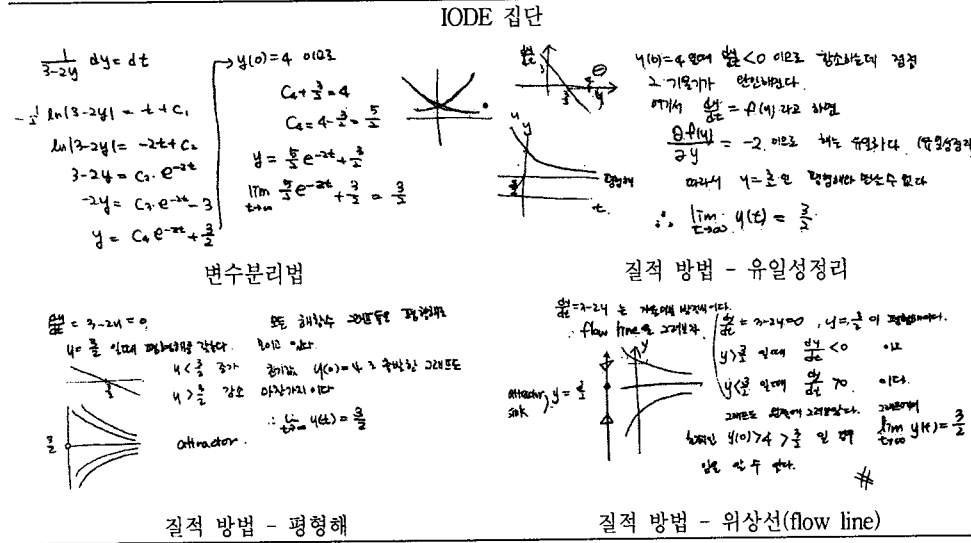 IODE 집단
1/(3-2y) dy = dt
-1/2 ln|3-2y| = t + C₁
ln|3-2y| = -2t + C₂
3-2y = C₃·e^{-2t}
-2y = C₃·e^{-2t} - 3
y = C₄e^{-2t} + 3/2
y(0)=4 이므로
C₄ + 3/2 = 4
C₄ = 4 - 3/2 = 5/2
y = 5/2 e^{-2t} + 3/2
lim t→∞ 5/2 e^{-2t} + 3/2 = 3/2
변수분리법
dy/dt
3/2
y
y(0)=4 일때 dy/dt < 0 이므로 감소하는데 점점
그 기울기가 완만해진다.
여기서 dy/dt = f(y) 라고 하면
∂f(y)/∂y = -2. 이므로 해는 유일하다. (유일성정리)
따라서 y=3/2 인 평형해와 만날수 없다
∴ lim t→∞ y(t) = 3/2
4
y
3/2
평형해
t
질적 방법 - 유일성정리
dy/dt = 3-2y = 0
y = 3/2 일때 평형해를 갖는다.
y < 3/2 증가
y > 3/2 감소
3/2
3/2
attractor.
모든 해함수 그래프들은 평형해로
모이고 있다.
초기값 y(0)=4 로 출발한 그래프도
마찬가지이다
∴ lim t→∞ y(t) = 3/2
질적 방법 - 평형해
dy/dt = 3-2y 는 자율미분 방정식이다.
∴ flow line을 그려보자
attractor
sink
y = 3/2
y
dy/dt = 3-2y=0, y=3/2 이 평형해이다.
y > 3/2 일때 dy/dt < 0 이고
y < 3/2 일때 dy/dt > 0. 이다.
그래프도 왼쪽에 그려보았다. 그래프에서
y(0)>4 > 3/2 일 경우 lim t→∞ y(t) = 3/2
임을 알 수 있다.
#
질적 방법 - 위상선(flow line)